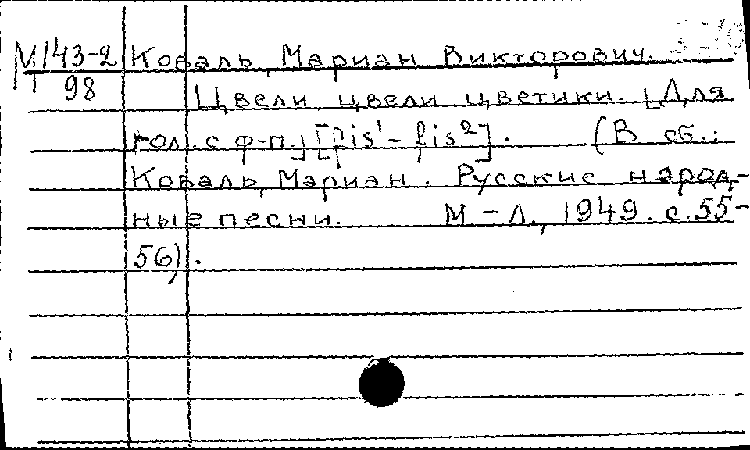 М 143-2 Коваль, Мариан Викторович.
98
Цвели цвели цветики. [Для
гол. с ф-п.] [fis¹ - fis²]. (В сб.:
Коваль, Мариан. Русские народ-
ные песни. М.-Л., 1949. с. 55-
56).